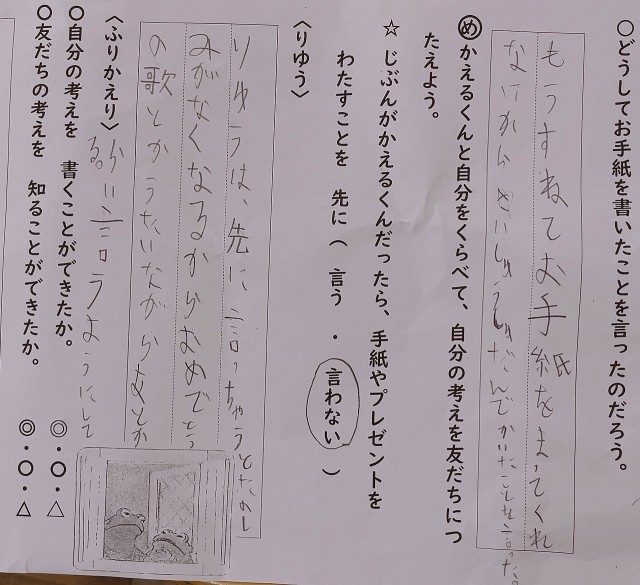 ○どうしてお手紙を書いたことを言ったのだろう。
もうすねてお手紙をまってくれ
ないからさいしゅうしゅだんでかいたことを言った。
めかえるくんと自分をくらべて、自分の考えを友だちにつ
たえよう。
☆じぶんがかえるくんだったら、手紙やプレゼントを
わたすことを 先に( 言う ・ 言わない )
〈りゆう〉
りゆうは、先に言っちゃうとたのし
みがなくなるからおめでとう
の歌とかうたいながらあとか
ら言うようにして
る。
〈ふりかえり〉
○自分の考えを 書くことができたか。 ◎・○・△
○友だちの考えを 知ることができたか。 ◎・○・△